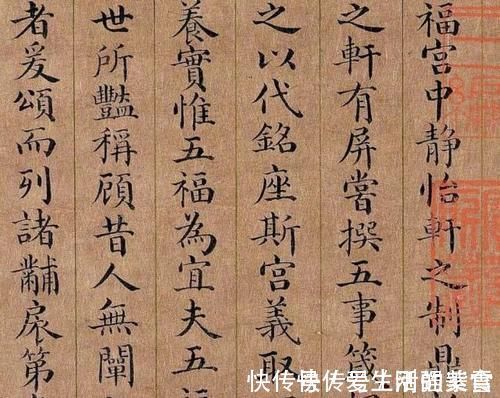 福宮中静怡軒之制鼎
之軒有屏嘗撰五事箴
之以代銘座斯宮義取
養實惟五福為宜夫五
世所豔稱顧昔人無闡
者爰頌而列諸黼扆第
快传号